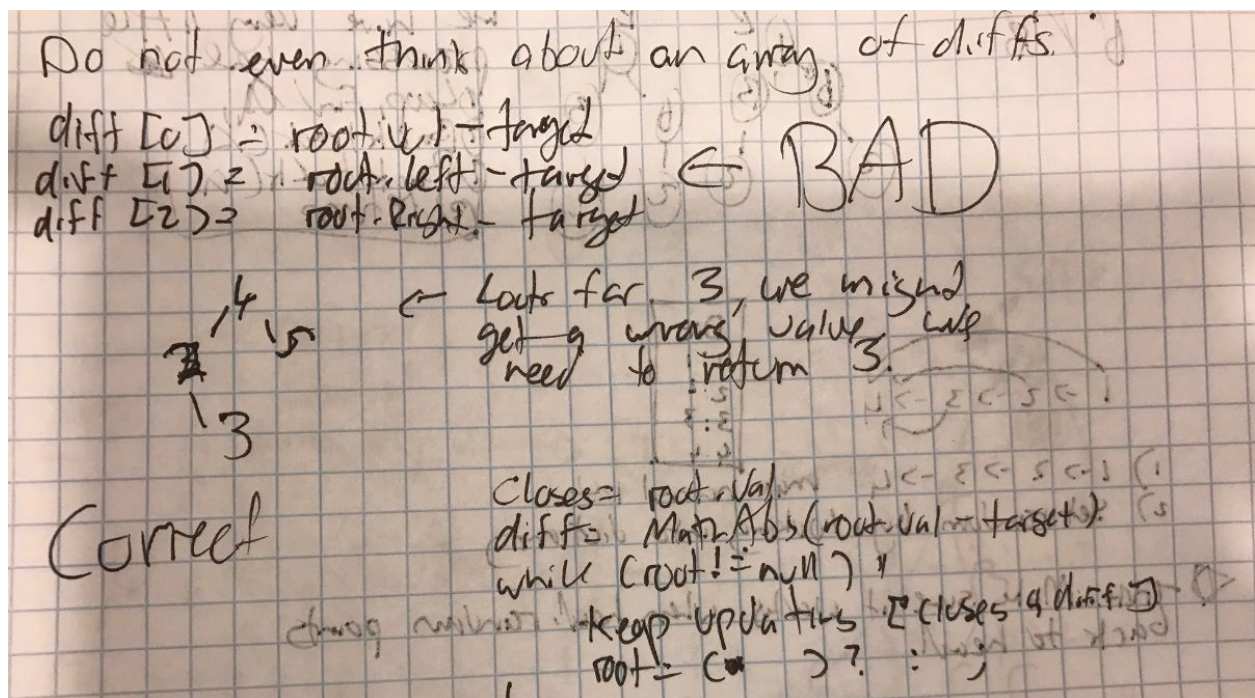 Do not even think about an array of diffs.
diff [0] = root.val - target
diff [1] = root.left - target ← BAD
diff [2] = root.Right - target
4 ← Look for 3, we might
5 get a wrong value, we
need to return 3.
3
Correct
Closes= root.val
diff= Math.Abs(root.val - target)
while (root != null)
keep updating [closes & diff]
root = ( ) ? : ;